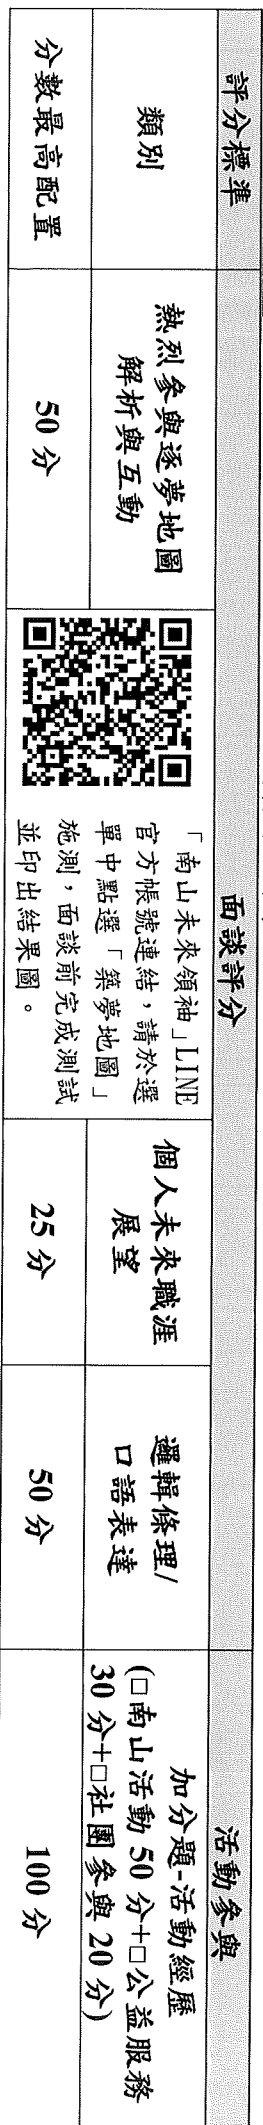 評分標準
面談評分
活動參與
類別
熱烈參與逐夢地圖
解析與互動
「南山未來領袖」LINE
官方帳號連結,請於選
單中點選「築夢地圖」
施測,面談前完成測試
並印出結果圖。
個人未來職涯
展望
邏輯條理/
口語表達
加分題-活動經歷
(□南山活動 50 分+□公益服務
30 分+□社團參與 20 分)
分數最高配置
50 分
25 分
50 分
100 分